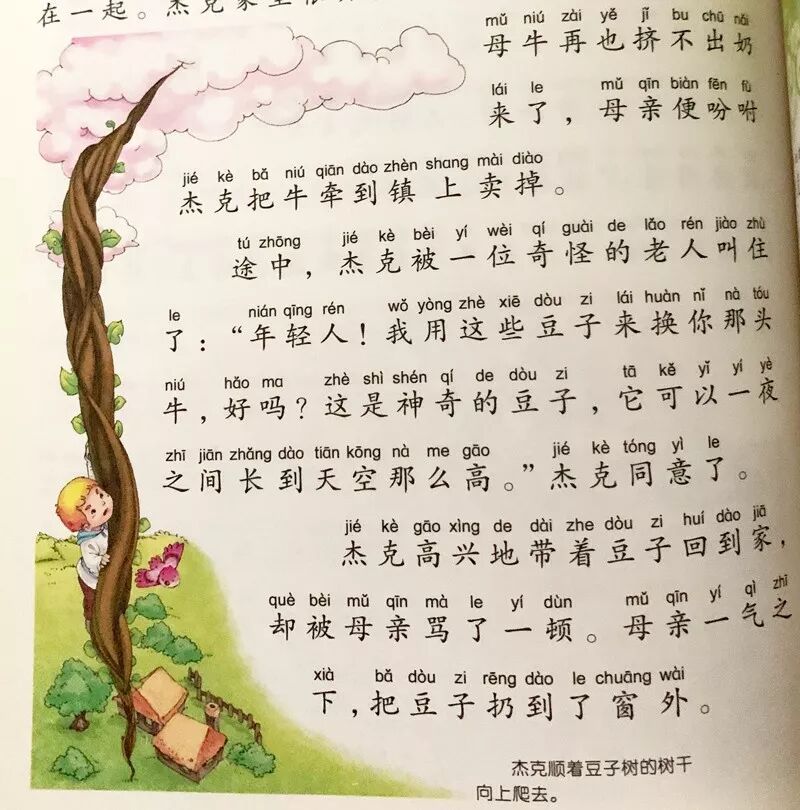 在一起。杰克家里很
mǔ niú zài yě jǐ bu chū nǎi
母牛再也挤不出奶
lái le mǔ qīn biàn fēn fù
来了，母亲便吩咐
jié kè bǎ niú qiān dào zhèn shang mài diào
杰克把牛牵到镇上卖掉。
tú zhōng jié kè bèi yí wèi qí guài de lǎo rén jiào zhù
途中，杰克被一位奇怪的老人叫住
le nián qīng rén wǒ yòng zhè xiē dòu zi lái huàn nǐ nà tóu
了：“年轻人！我用这些豆子来换你那头
niú hǎo ma zhè shì shén qí de dòu zi tā kě yǐ yí yè
牛，好吗？这是神奇的豆子，它可以一夜
zhī jiān zhǎng dào tiān kōng nà me gāo jié kè tóng yì le
之间长到天空那么高。”杰克同意了。
jié kè gāo xìng de dài zhe dòu zi huí dào jiā
杰克高兴地带着豆子回到家，
què bèi mǔ qīn mà le yí dùn mǔ qīn yí qì zhī
却被母亲骂了一顿。母亲一气之
xià bǎ dòu zi rēng dào le chuāng wài
下，把豆子扔到了窗外。
杰克顺着豆子树的树干
向上爬去。